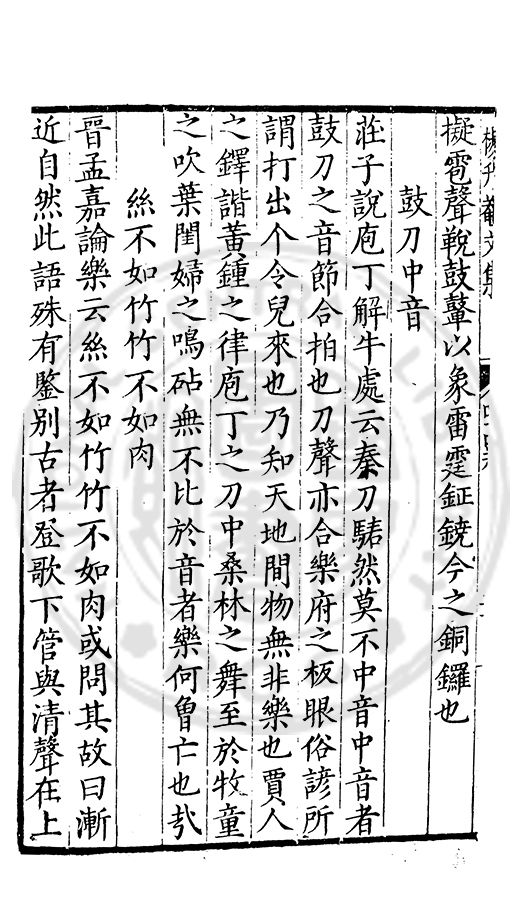 擬雹聲鞉鼓鼙以象雷霆鉦鐃今之銅鑼也
鼓刀中音
莊子說庖丁解牛處云奏刀騞然莫不中音中音者
鼓刀之音節合拍也刀聲亦合樂府之板眼俗諺所
謂打出个令兒來也乃知天地間物無非樂也賈人
之鐸諧黃鍾之律庖丁之刀中桑林之舞至於牧童
之吹葉閨婦之鳴砧無不比於音者樂何曾亡也㢤
絲不如竹竹不如肉
晉孟嘉論樂云絲不如竹竹不如肉或問其故曰漸
近自然此語殊有鑒別古者登歌下管與清聲在上